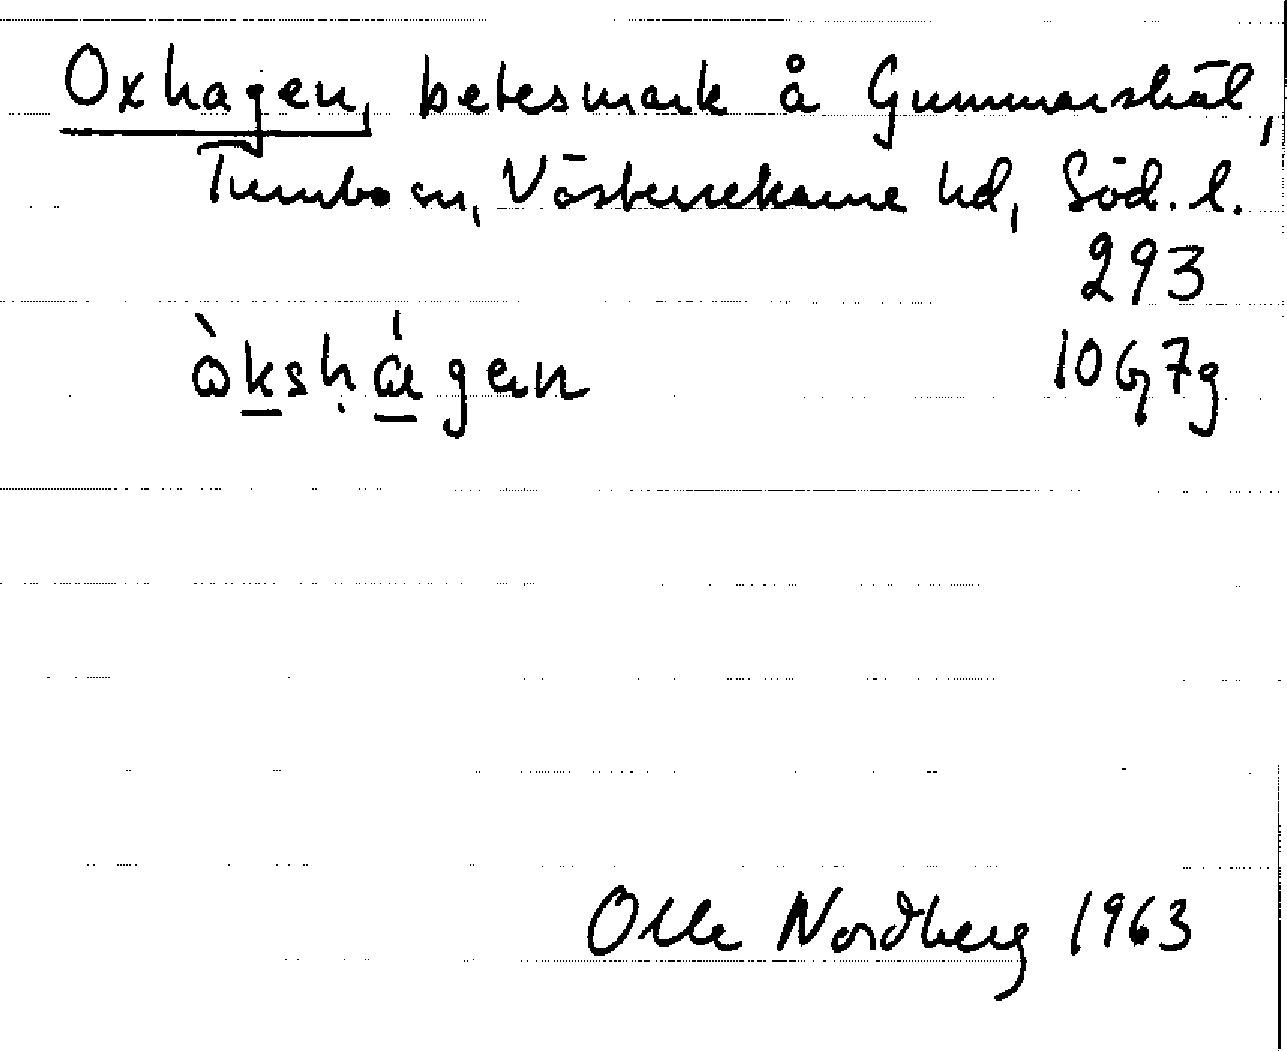 Oxhagen, betesmark å Gunnarskäl,
Tumbo sn, Västerrekarne hd, Söd. l.
293
òkshágen 10G7g
Olle Nordberg 1963